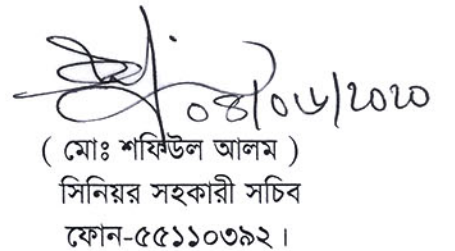 ০৪/০৬/২০২০
( মোঃ শফিউল আলম )
সিনিয়র সহকারী সচিব
ফোন-৫৫১১০৩৯২।